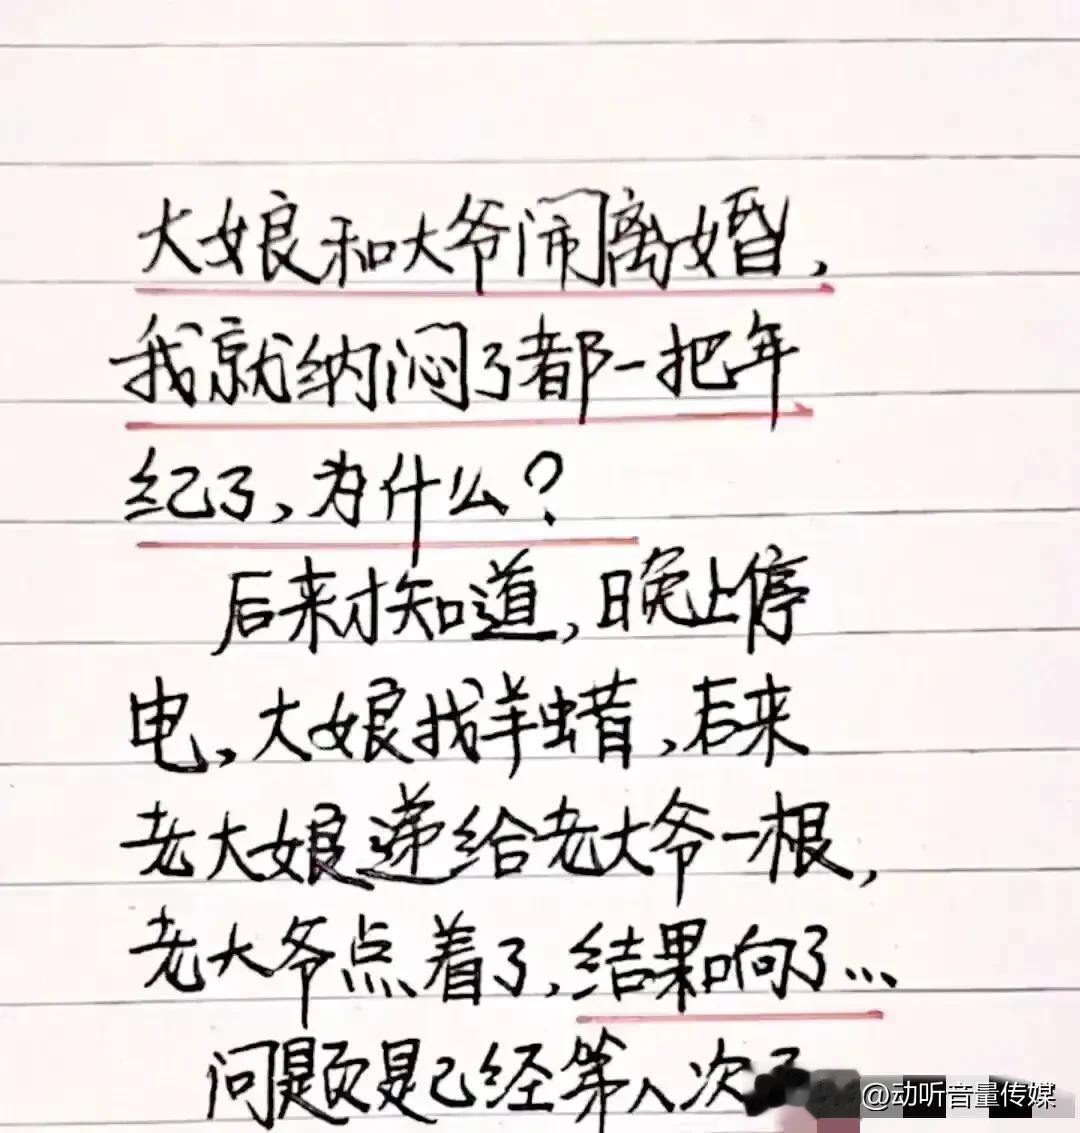 大娘和大爷闹离婚，
我就纳闷了都一把年
纪了，为什么？
后来才知道，晚上停
电，大娘找羊蜡，后来
老大娘递给老大爷一根，
老大爷点着了，结果响了...
问题是已经第八次了
@动听音量传媒